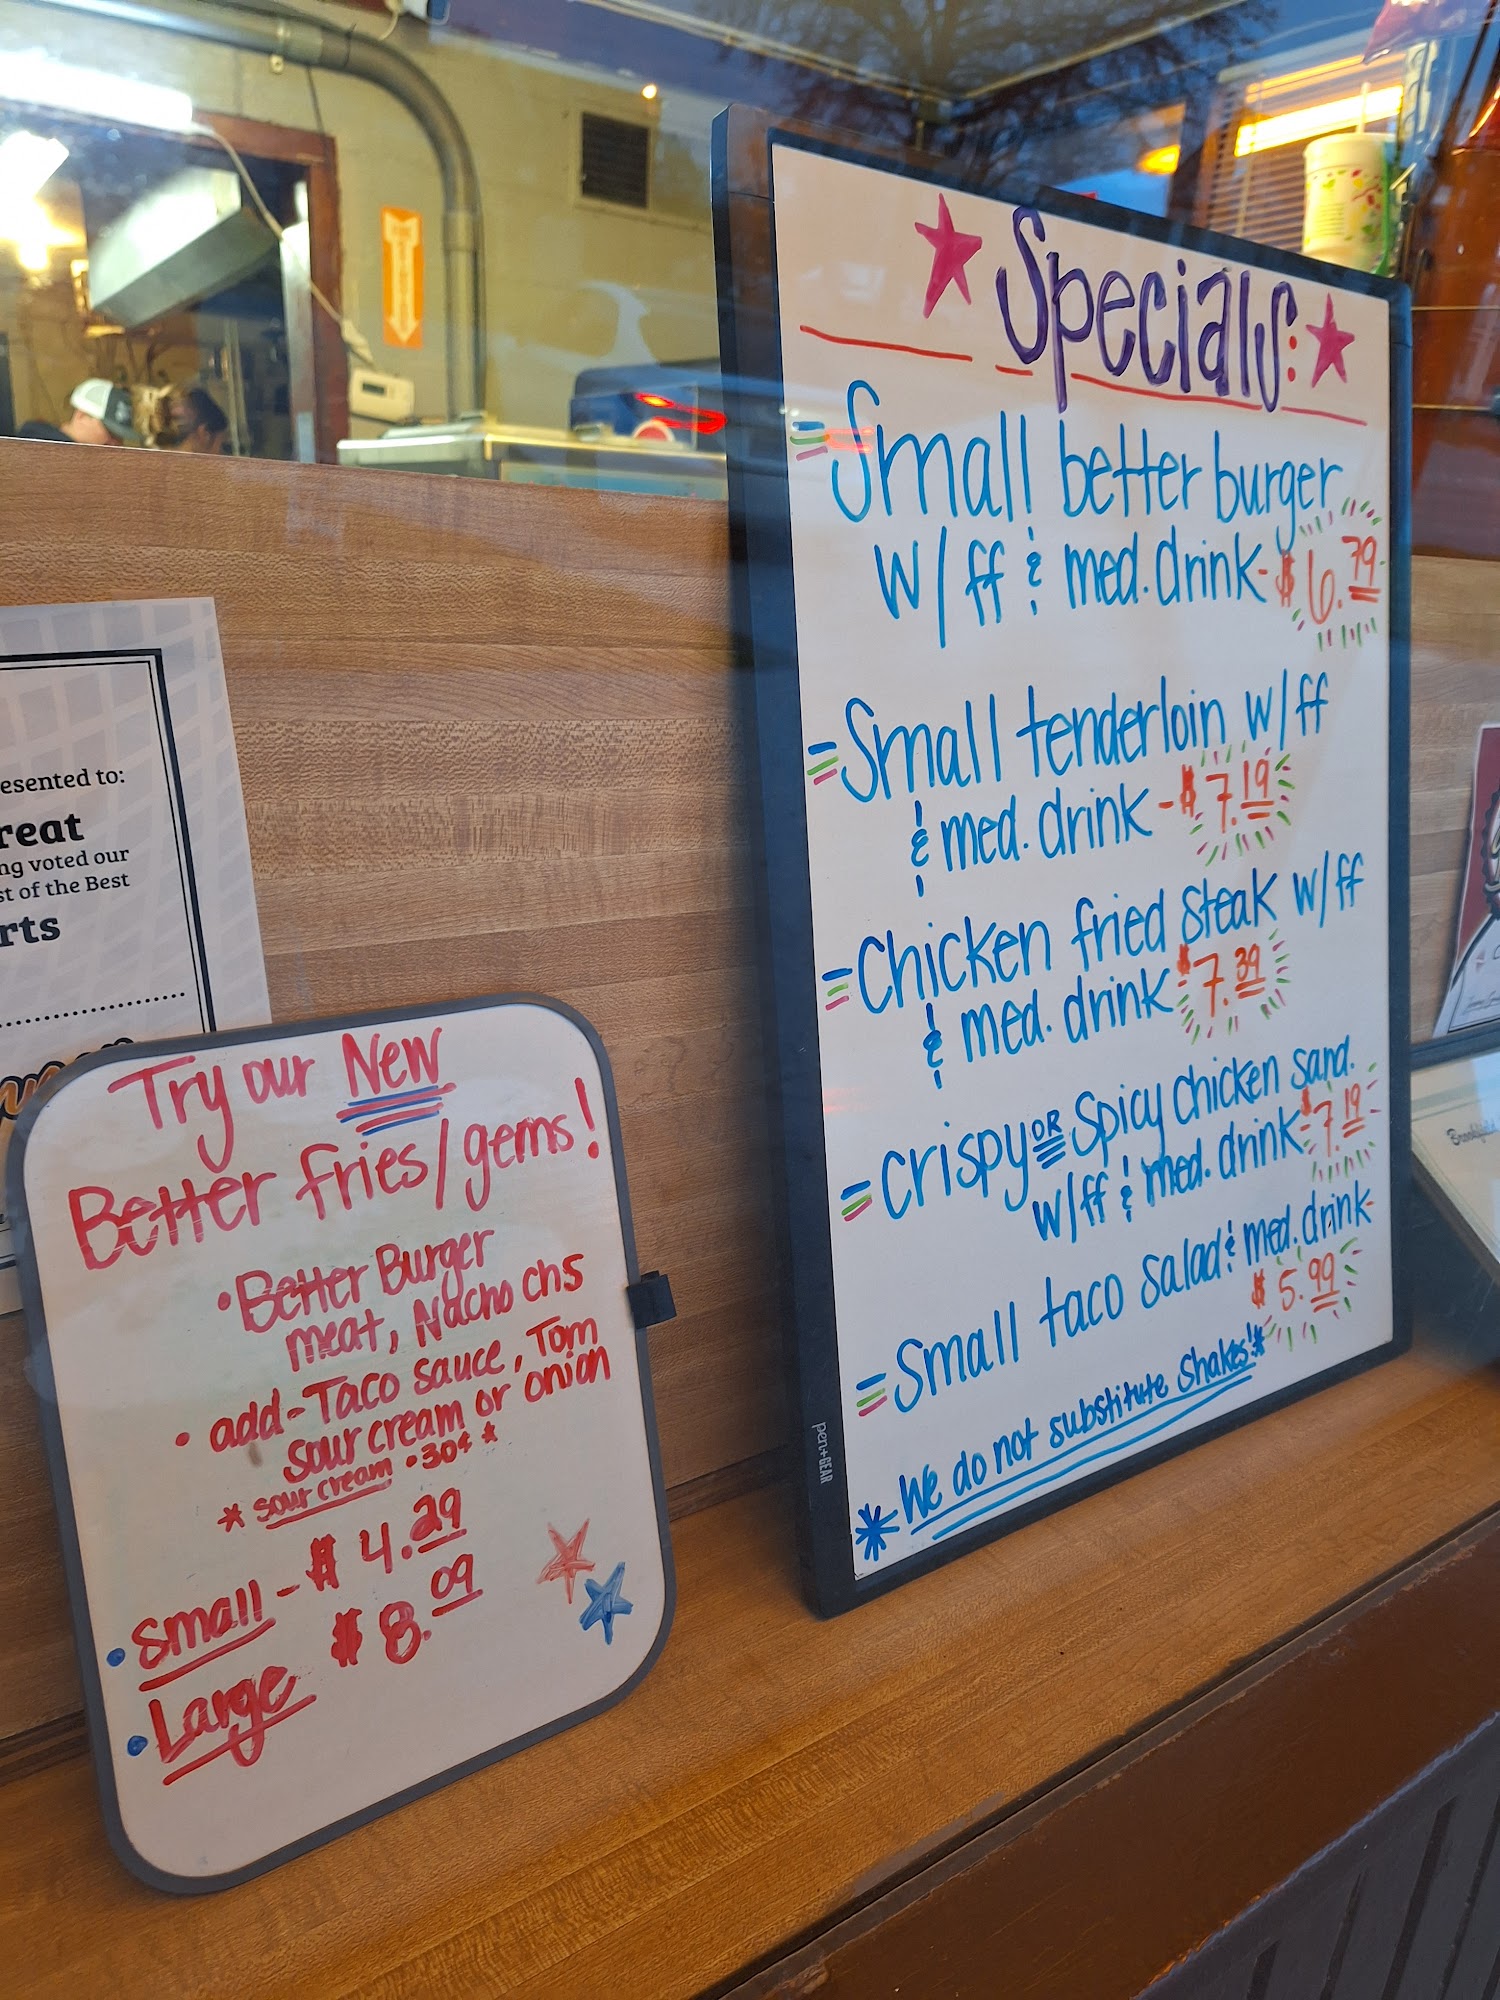 Specials:
Small better burger
w/ff & med. drink- $6.79
Small tenderloin w/ff
& med. drink - $7.19
Chicken fried steak w/ff
& med. drink - $7.39
Crispy OR Spicy chicken sand.
w/ff & med. drink - $7.19
Small taco salad & med. drink-
$5.99
* We do not substitute shakes! *
pen+GEAR
Try our New
Better fries/gems!
• Better Burger
meat, Nacho chs
• add-Taco sauce, Tom
sour cream or onion
* sour cream • 30¢ *
• Small - $4.29
• Large $8.09
esented to:
reat
ng voted our
st of the Best
rts